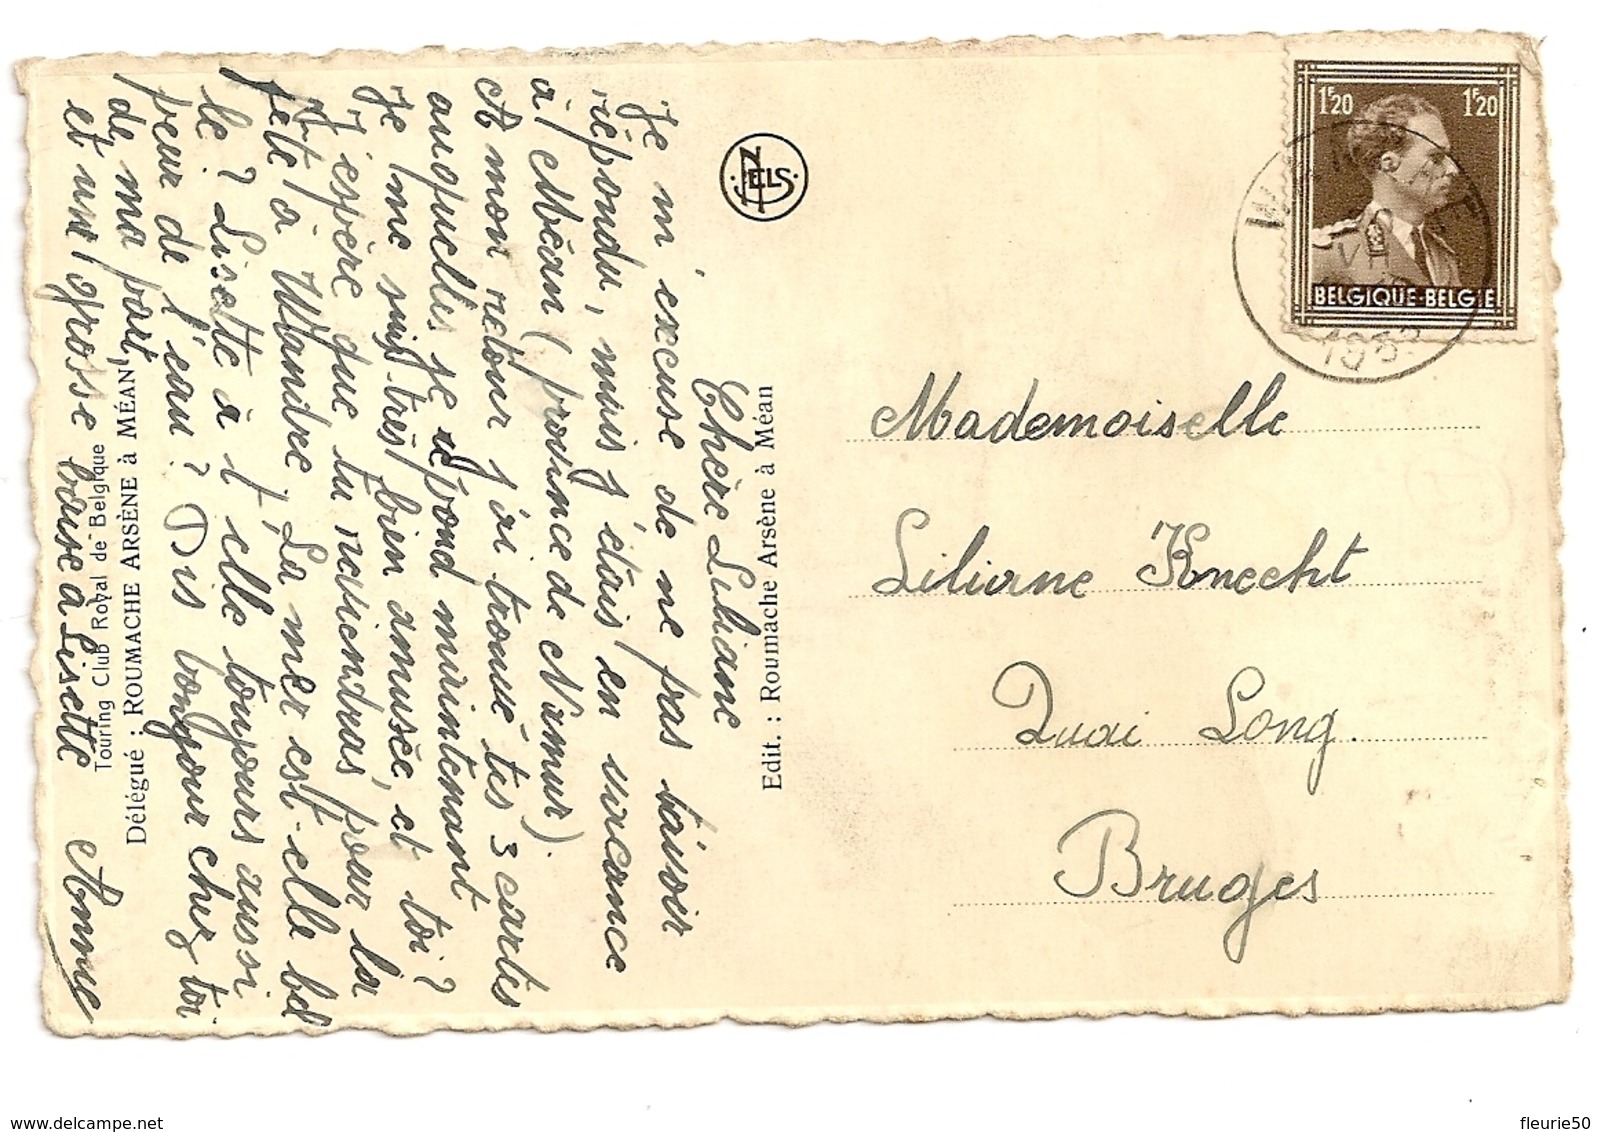 Chère Liliane
Je m'excuse de ne pas t'avoir
répondu, mais j'étais en vacance
à Méan (province de Namur).
A mon retour j'ai trouvé tes 3 cartes
auxquelles je répond maintenant
Je me suis très bien amusée, et toi?
J'espère que tu reviendras pour la
fête à Wandre, La mer est-elle bel
le? Lisette à t'elle toujours aussi
peur de l'eau? Dis bonjour chez toi
de ma part,
et une grosse baise à Lisette
Anne
Touring Club Royal de Belgique
Délégué : ROUMACHE ARSÈNE à MÉAN
Edit. : Roumache Arsène à Méan
NELS
1F20 1F20
BELGIQUE-BELGIE
1953
Mademoiselle
Liliane Knecht
Quai Long.
Bruges
www.delcampe.net
fleurie50